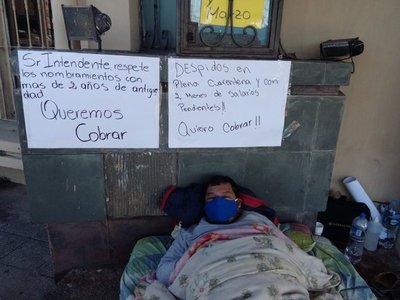 Marzo
Sr Intendente, respete
los nombramientos con
mas de 2, años de antigüe
dad
¡Queremos
Cobrar
DESPidos en
Plena Cuarentena y con
2 Meses de Salarios
Pendientes!!
Quiero Cobrar!!